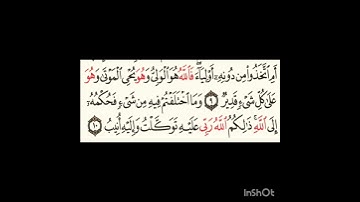 أَمِ ٱتَّخَذُوا۟ مِن دُونِهِۦٓ أَوْلِيَآءَ ۖ فَٱللَّهُ هُوَ ٱلْوَلِىُّ وَهُوَ يُحْىِ ٱلْمَوْتَىٰ وَهُوَ
عَلَىٰ كُلِّ شَىْءٍ قَدِيرٌ ٩ وَمَا ٱخْتَلَفْتُمْ فِيهِ مِن شَىْءٍ فَحُكْمُهُۥٓ
إِلَى ٱللَّهِ ۚ ذَٰلِكُمُ ٱللَّهُ رَبِّى عَلَيْهِ تَوَكَّلْتُ وَإِلَيْهِ أُنِيبُ ١٠
InShOt